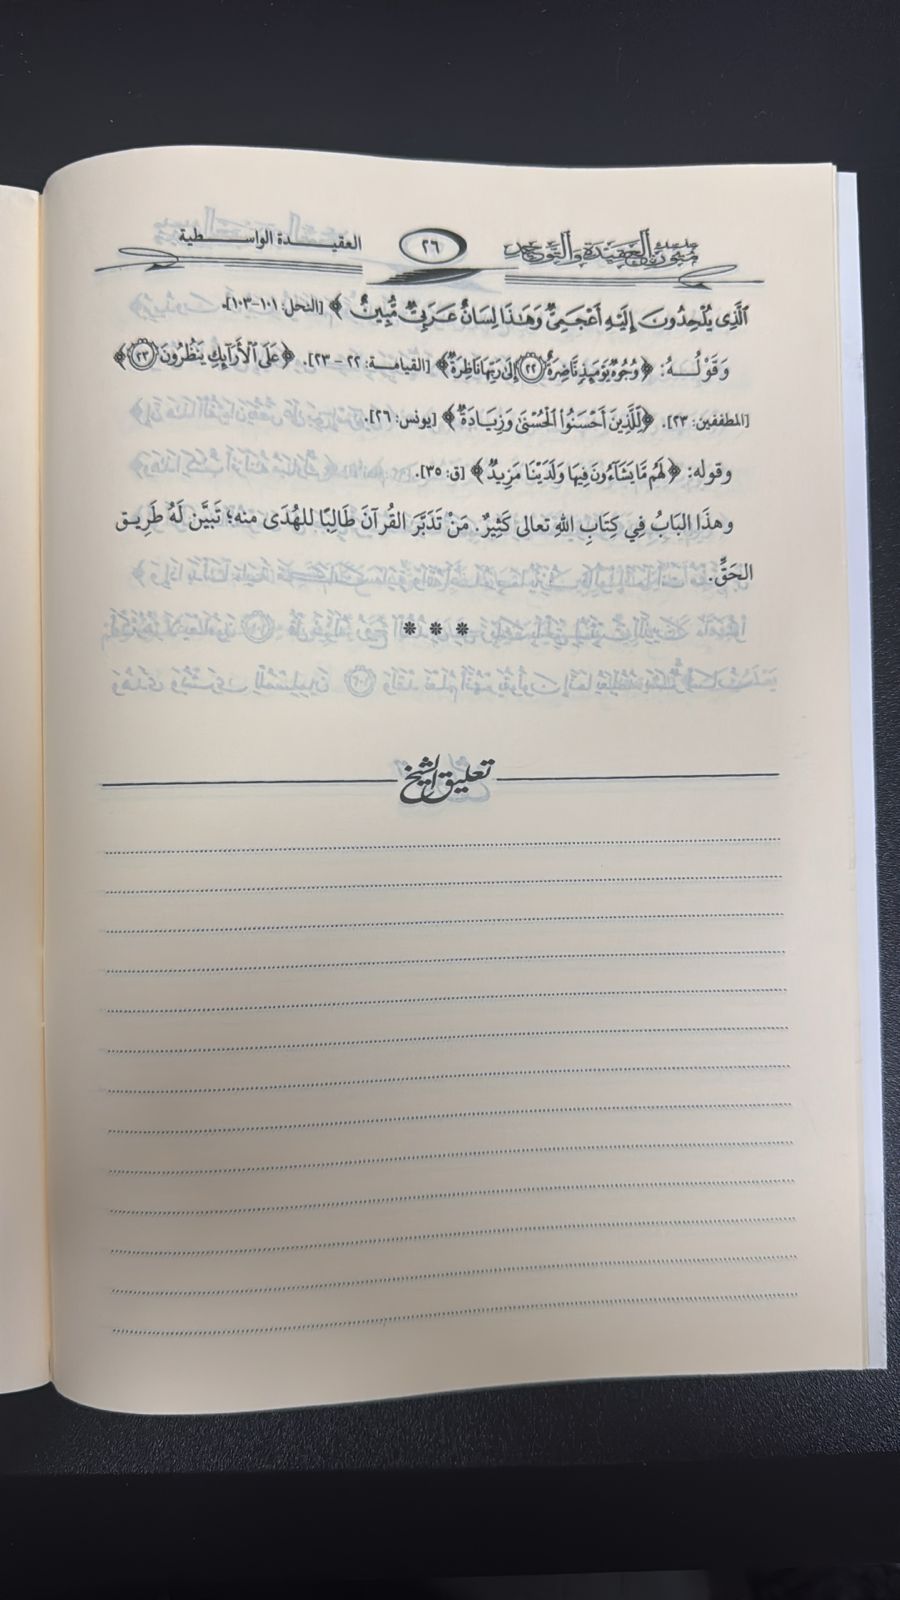 سلسلة متون العقيدة والتوحيد ٢٦ العقيدة الواسطية
ٱلَّذِي يُلْحِدُونَ إِلَيْهِ أَعْجَمِيٌّ وَهَـٰذَا لِسَانٌ عَرَبِيٌّ مُّبِينٌ ﴾ [النحل: ١٠١-١٠٣].
وَقَوْلُهُ: ﴿وُجُوهٌ يَوْمَئِذٍ نَّاضِرَةٌ ٢٢ إِلَىٰ رَبِّهَا نَاظِرَةٌ﴾ [القيامة: ٢٢ - ٢٣]. ﴿عَلَى ٱلْأَرَآئِكِ يَنظُرُونَ ٢٣﴾
[المطففين: ٢٣]. ﴿لِلَّذِينَ أَحْسَنُوا۟ ٱلْحُسْنَىٰ وَزِيَادَةٌ﴾ [يونس: ٢٦].
وقوله: ﴿لَهُم مَّا يَشَآءُونَ فِيهَا وَلَدَيْنَا مَزِيدٌ﴾ [ق: ٣٥].
وهذَا البَابُ فِي كِتَابِ اللهِ تعالى كَثِيرٌ. مَنْ تَدَبَّرَ القُرآنَ طَالِبًا للهُدَى منه؛ تَبَيَّن لَهُ طَرِيق
الحَقِّ.
* * *
تعليق الشيخ